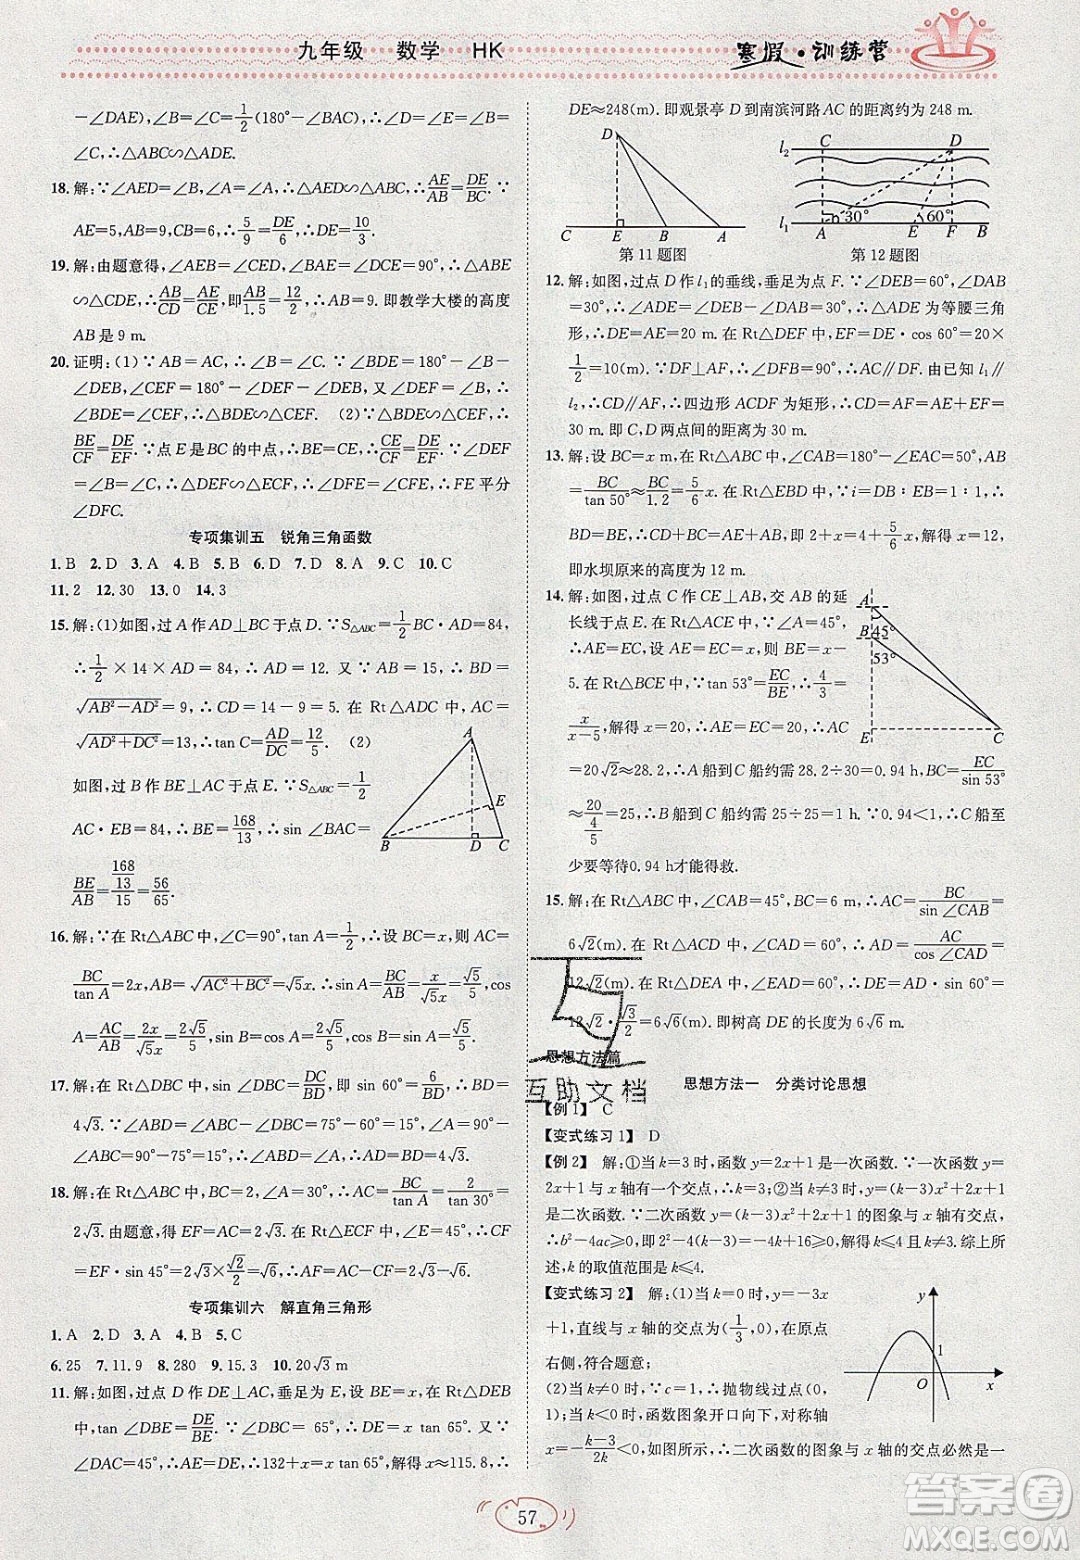 九年级 数学 HK
寒假·训练营
-∠DAE),∠B=∠C=1/2(180°-∠BAC),∴∠AED=∠B=
∠C,∴△ABC∽△ADE.
18.解:∵∠AED=∠B,∠A=∠A,∴△AED∽△ABC,∴AE/AB=DE/BC.∵
AE=5,AB=9,CB=6,∴5/9=DE/6,∴DE=10/3.
19.解:由题意得,∠AEB=∠CED,∠BAE=∠DCE=90°,∴△ABE
∽△CDE,∴AB/CD=AE/CE,即AB/1.5=12/2,∴AB=9.即教学大楼的高度
AB是9 m.
20.证明:(1)∵AB=AC,∴∠B=∠C.∵∠BDE=180°-∠B-
∠DEB,∠CEF=180°-∠DEF-∠DEB,又∵∠DEF=∠B,∴
∠BDE=∠CEF,∴△BDE∽△CEF. (2)∵△BDE∽△CEF,∴
BE/CF=DE/EF.∵点E是BC的中点,∴BE=CE,∴CE/CF=DE/EF.∵∠DEF
=∠B=∠C,∴△DEF∽△ECF,∴∠DFE=∠CFE,∴FE平分
∠DFC.
专项集训五 锐角三角函数
1.B 2.D 3.A 4.A 5.B 6.D 7.D 8.A 9.C 10.C
11.2 12.30 13.0 14.3
15.解:(1)如图,过A作AD⊥BC于点D.∵S△ABC=1/2BC·AD=84,
∴1/2×14×AD=84,∴AD=12.又∵AB=15,∴BD=
√(AB²-AD²)=9,∴CD=14-9=5.在Rt△ADC中,AC=
√(AD²+DC²)=13,∴tan C=AD/DC=12/5. (2)
如图,过B作BE⊥AC于点E.∵S△ABC=1/2
AC·EB=84,∴BE=168/13,∴sin ∠BAC=
BE/AB=(168/13)/15=56/65.
A
E
B D C
16.解:∵在Rt△ABC中,∠C=90°,tan A=1/2,∴设BC=x,则AC=
BC/tan A=2x,∴AB=√(AC²+BC²)=√5x.∴sin A=BC/AB=x/√5x=√5/5,cos
A=AC/AB=2x/√5x=2√5/5,sin B=cos A=2√5/5,cos B=sin A=√5/5.
17.解:∵在Rt△BDC中,sin∠DBC=DC/BD,∴BD=6/sin 60°=6/(√3/2)=
4√3.∵∠ABD=∠ABC-∠DBC=75°-60°=15°,∠A=90°-
∠ABC=90°-75°=15°,∴∠ABD=∠A,∴AD=BD=4√3.
18.解:在Rt△ABC中,BC=2,∠A=30°,∴AC=BC/tan A=2/tan 30°=
2√3.由题意,得EF=AC=2√3.在Rt△EFC中,∠E=45°,∴CF
=EF·sin 45°=2√3×√2/2=√6,∴AF=AC-CF=2√3-√6.
专项集训六 解直角三角形
1.A 2.D 3.A 4.B 5.C
6.25 7.11.9 8.280 9.15.3 10.20√3 m
11.解:如图,过点D作DE⊥AC,垂足为E,设BE=x,在Rt△DEB
中,tan ∠DBE=DE/BE.∵∠DBC=65°,∴DE=x tan 65°.又∵
∠DAC=45°,∴AE=DE,∴132+x=x tan 65°,∴x≈115.8,∴
DE≈248(m).即观景亭D到南滨河路AC的距离约为248 m.
D
C E B A
第11题图
l₂ C D
30° 60°
l₁ A E F B
第12题图
12.解:如图,过点D作l₁的垂线,垂足为点F.∵∠DEB=60°,∠DAB
=30°,∴∠ADE=∠DEB-∠DAB=30°,∴△ADE为等腰三角
形,∴DE=AE=20 m.在Rt△DEF中,EF=DE·cos 60°=20×
1/2=10(m).∵DF⊥AF,∴∠DFB=90°,∴AC∥DF.由已知l₁∥
l₂,∴CD∥AF,∴四边形ACDF为矩形,∴CD=AF=AE+EF=
30 m.即C,D两点间的距离为30 m.
13.解:设BC=x m,在Rt△ABC中,∠CAB=180°-∠EAC=50°,AB=
BC/tan 50°≈BC/1.2=5/6x.在Rt△EBD中,∵i=DB∶EB=1∶1,∴
BD=BE,∴CD+BC=AE+AB,即2+x=4+5/6x,解得x=12,
即水坝原来的高度为12 m.
14.解:如图,过点C作CE⊥AB,交AB的延
长线于点E.在Rt△ACE中,∵∠A=45°,
∴AE=EC,设AE=EC=x,则BE=x-
5.在Rt△BCE中,∵tan 53°=EC/BE,∴4/3=
x/(x-5),解得x=20,∴AE=EC=20,∴AC
=20√2≈28.2,∴A船到C船约需28.2÷30=0.94 h,BC=EC/sin 53°
≈20/(4/5)=25,∴B船到C船约需25÷25=1(h).∵0.94<1,∴C船至
少要等待0.94 h才能得救.
A
B 45°
53°
E C
15.解:在Rt△ABC中,∠CAB=45°,BC=6 m,∴AC=BC/sin ∠CAB=
6√2(m).在Rt△ACD中,∠CAD=60°,∴AD=AC/cos ∠CAD=
12√2(m).在Rt△DEA中,∠EAD=60°,∴DE=AD·sin 60°=
12√2·√3/2=6√6(m).即树高DE的长度为6√6 m.
思想方法篇
互助文档
思想方法一 分类讨论思想
【例1】 C
【变式练习1】 D
【例2】 解:①当k=3时,函数y=2x+1是一次函数.∵一次函数y
=2x+1与x轴有一个交点,∴k=3;②当k≠3时,y=(k-3)x²+2x+1
是二次函数.∵二次函数y=(k-3)x²+2x+1的图象与x轴有交点,
∴b²-4ac≥0,即2²-4(k-3)=-4k+16≥0,∴k≤4且k≠3.综上所
述,k的取值范围是k≤4.
【变式练习2】 解:(1)当k=0时,y=-3x
+1,直线与x轴的交点为(1/3,0),在原点
右侧,符合题意;
(2)当k≠0时,∴抛物线过点(0,1),∴
当k<0时,函数图象开口向下,对称轴
x=(k-3)/2k<0,如图所示,∴二次函数的图象与x轴的交点必然是一
y
1
O x
57
答案圈
MXQE.COM